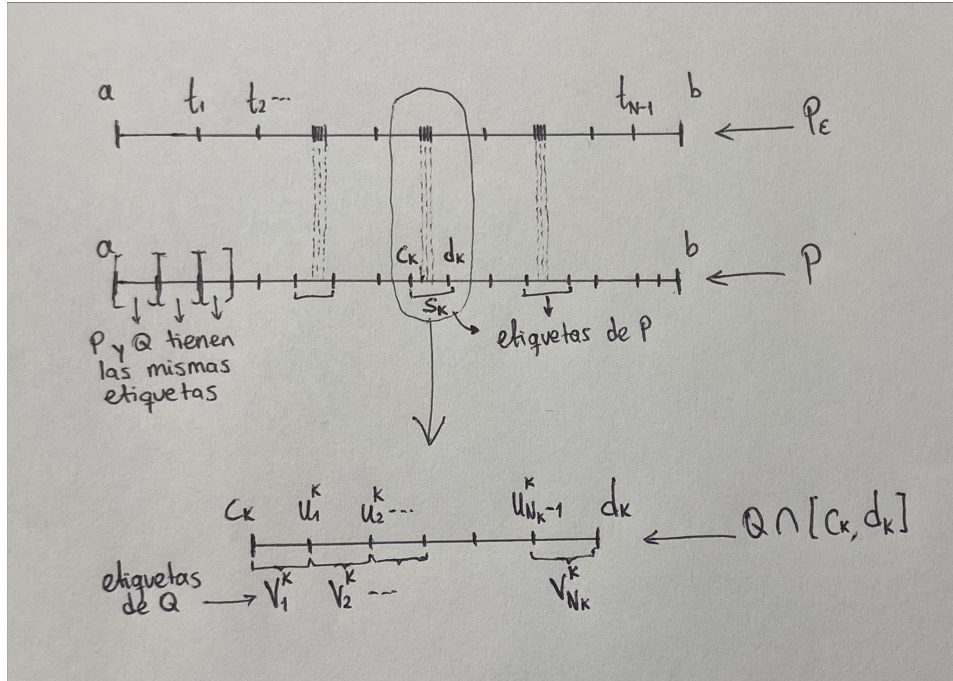 a t₁ t₂ ... t_{N-1} b ← P_ε
a c_K d_K b ← P
s_K
etiquetas de P
P y Q tienen
las mismas
etiquetas
c_K u₁^K u₂^K ... u_{N_K-1}^K d_K ← Q ∩ [c_K, d_K]
etiquetas
de Q → V₁^K V₂^K ... V_{N_K}^K